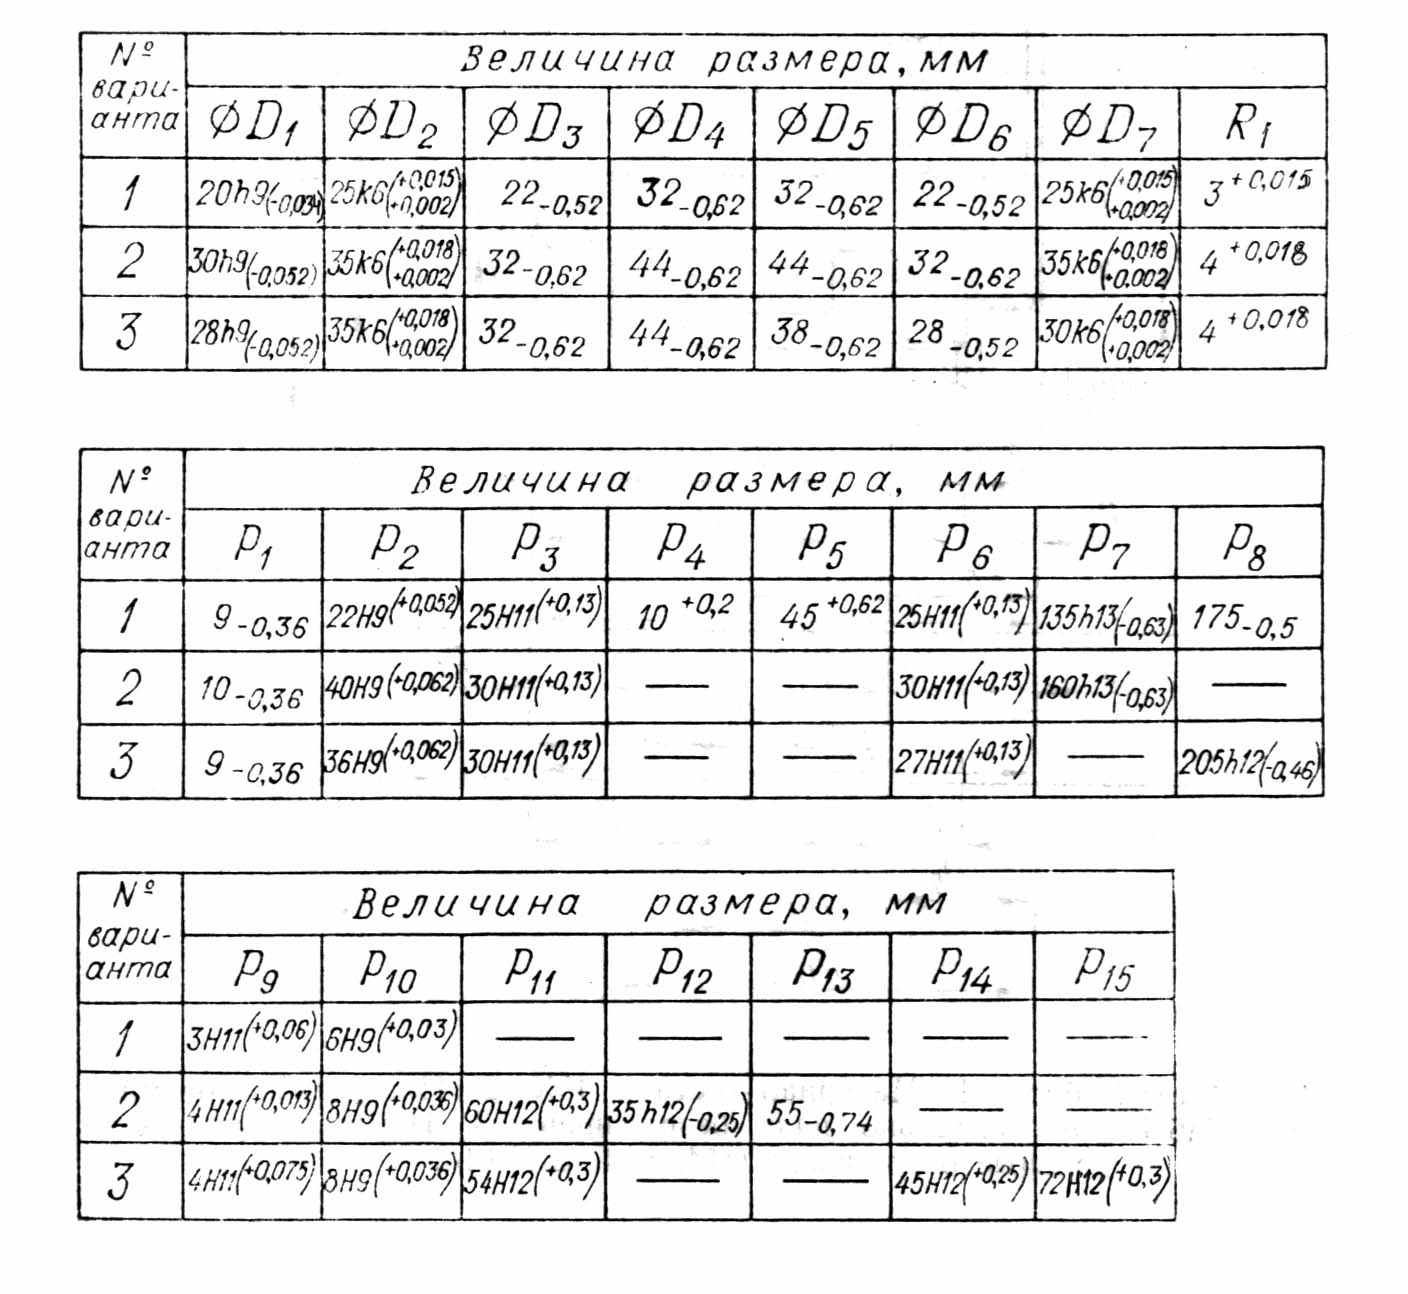 № вари-анта Величина размера, мм
ØD1 ØD2 ØD3 ØD4 ØD5 ØD6 ØD7 R1
1 20h9(-0,034) 25k6(+0,015 +0,002) 22-0,52 32-0,62 32-0,62 22-0,52 25k6(+0,015 +0,002) 3+0,015
2 30h9(-0,052) 35k6(+0,018 +0,002) 32-0,62 44-0,62 44-0,62 32-0,62 35k6(+0,018 +0.002) 4+0,018
3 28h9(-0,052) 35k6(+0,018 +0,002) 32-0,62 44-0,62 38-0,62 28-0,52 30k6(+0,018 +0,002) 4+0,018
№ вари-анта Величина размера, мм
P1 P2 P3 P4 P5 P6 P7 P8
1 9-0,36 22H9(+0,052) 25H11(+0,13) 10+0,2 45+0,62 25H11(+0,13) 135h13(-0,63) 175-0,5
2 10-0,36 40H9(+0,062) 30H11(+0,13) — — 30H11(+0,13) 160h13(-0,63) —
3 9-0,36 36H9(+0,062) 30H11(+0,13) — — 27H11(+0,13) — 205h12(-0,46)
№ вари-анта Величина размера, мм
P9 P10 P11 P12 P13 P14 P15
1 3H11(+0,06) 6H9(+0,03) — — — — —
2 4H11(+0,013) 8H9(+0,036) 60H12(+0,3) 35h12(-0,25) 55-0,74 — —
3 4H11(+0,075) 8H9(+0,036) 54H12(+0,3) — — 45H12(+0,25) 72H12(+0,3)